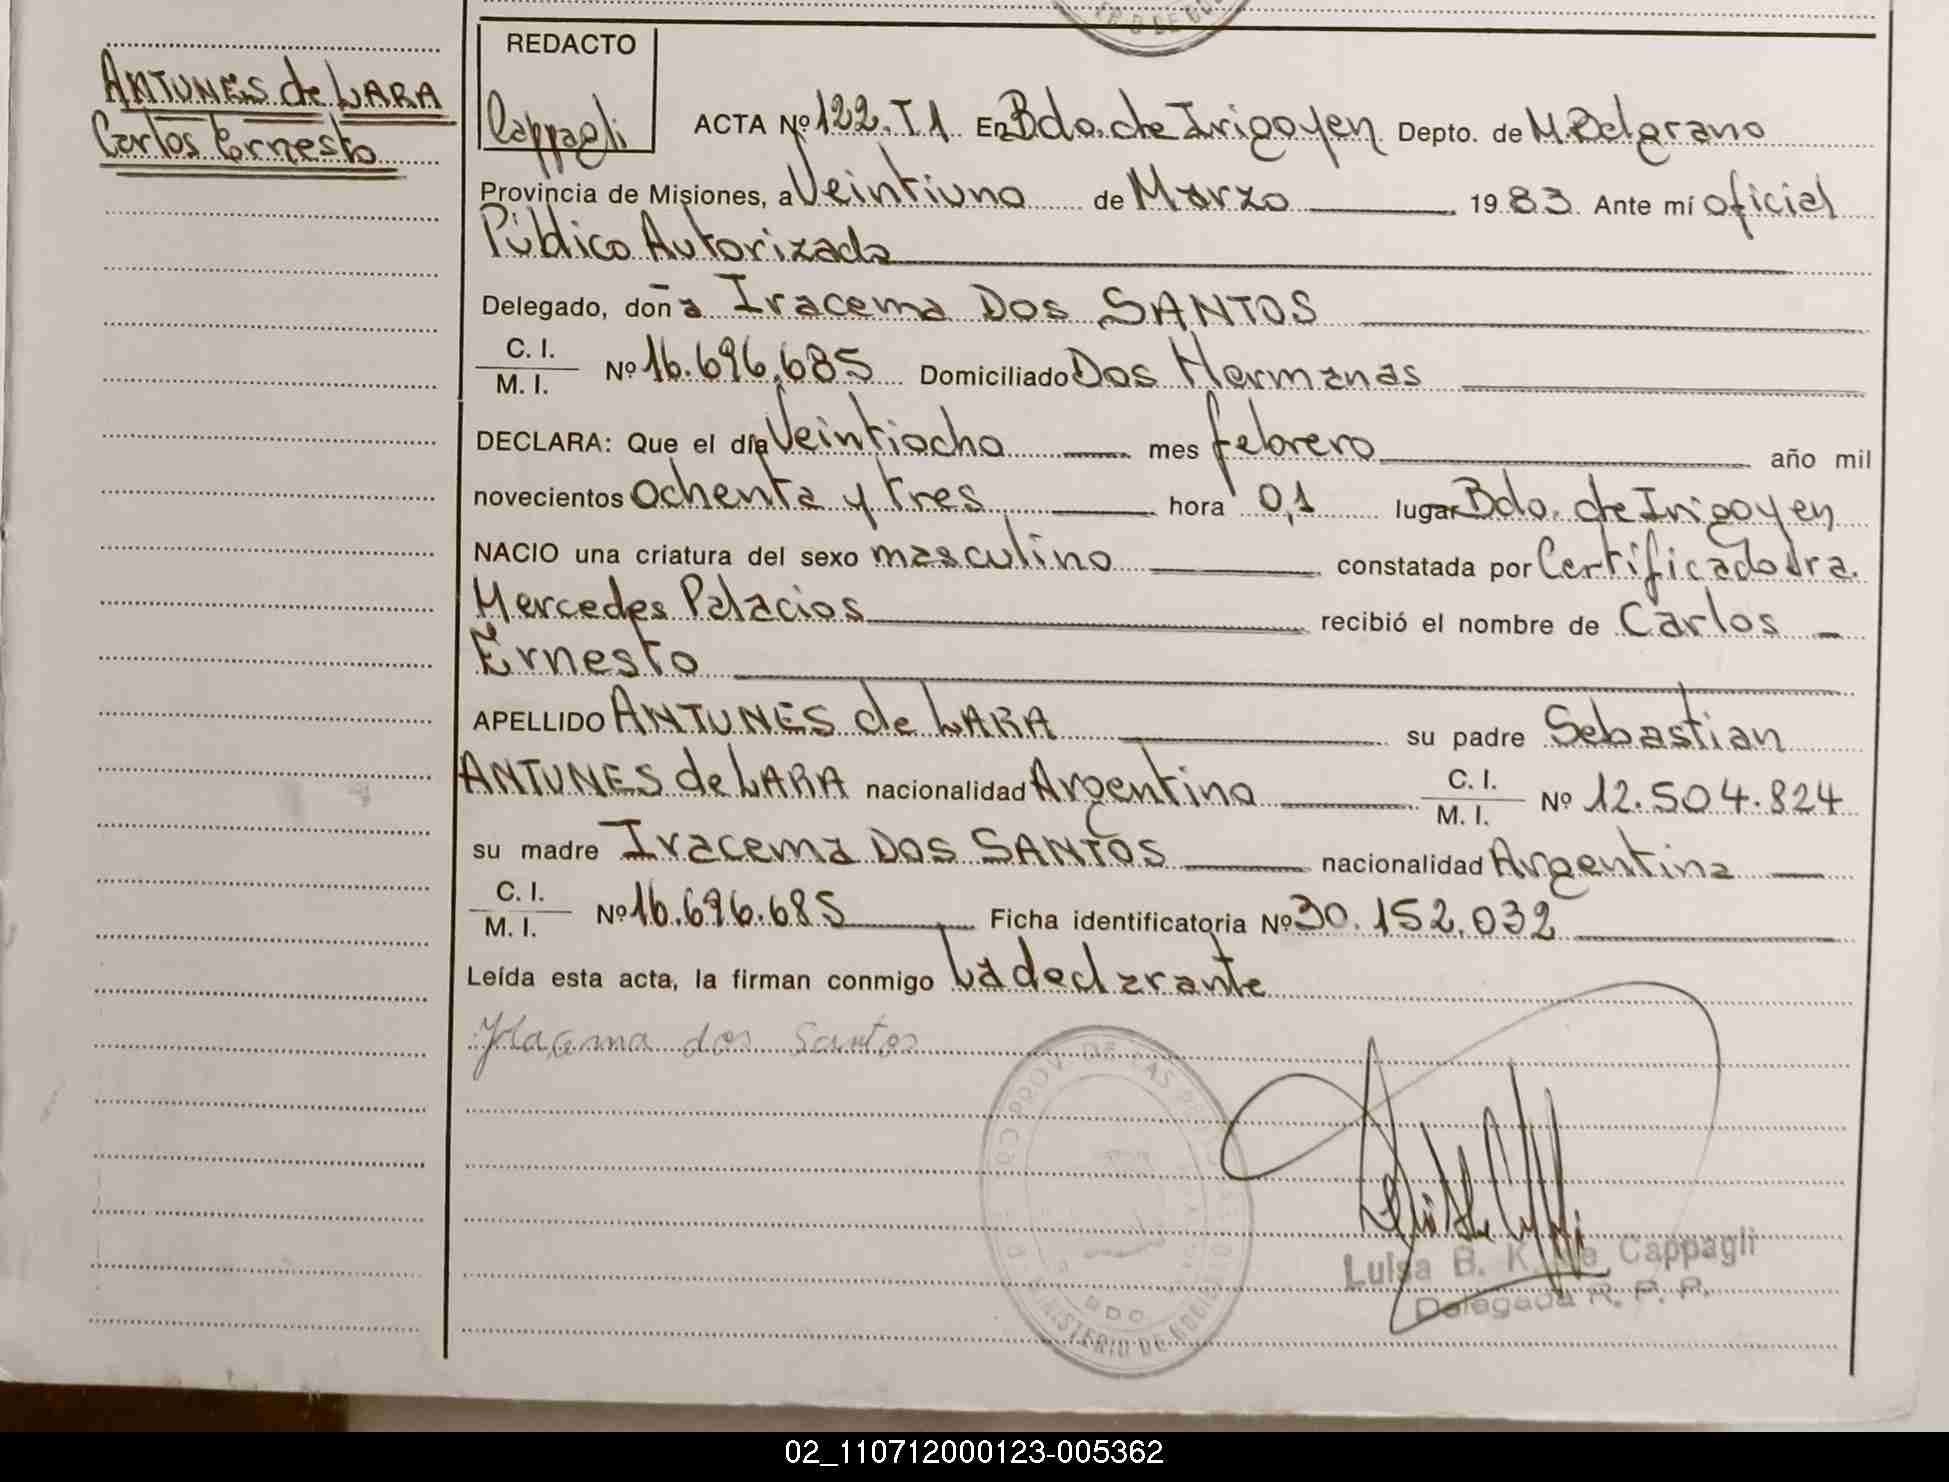 ANTUNES de LARA
Carlos Ernesto
REDACTO
Cappagli
ACTA Nº 122. T1 En Bdo. de Irigoyen Depto. de M. Belgrano
Provincia de Misiones, a Veintiuno de Marzo 1983. Ante mí oficial
Público Autorizado
Delegado, doña Iracema Dos SANTOS
C. I.
M. I. Nº 16.696.685 Domiciliado Dos Hermanas
DECLARA: Que el día Veintiocho mes febrero año mil
novecientos ochenta y tres hora 0,1 lugar Bdo. de Irigoyen
NACIO una criatura del sexo masculino constatada por Certificado Dra.
Mercedes Palacios recibió el nombre de Carlos
Ernesto
APELLIDO ANTUNES de LARA su padre Sebastian
ANTUNES de LARA nacionalidad Argentina C. I.
M. I. Nº 12.504.824
su madre Iracema DOS SANTOS nacionalidad Argentina
C. I.
M. I. Nº 16.696.685 Ficha identificatoria Nº 30.152.032
Leída esta acta, la firman conmigo La declarante
dos Santos
Luisa B. K. de Cappagli
Delegada R. P. P.
02_110712000123-005362